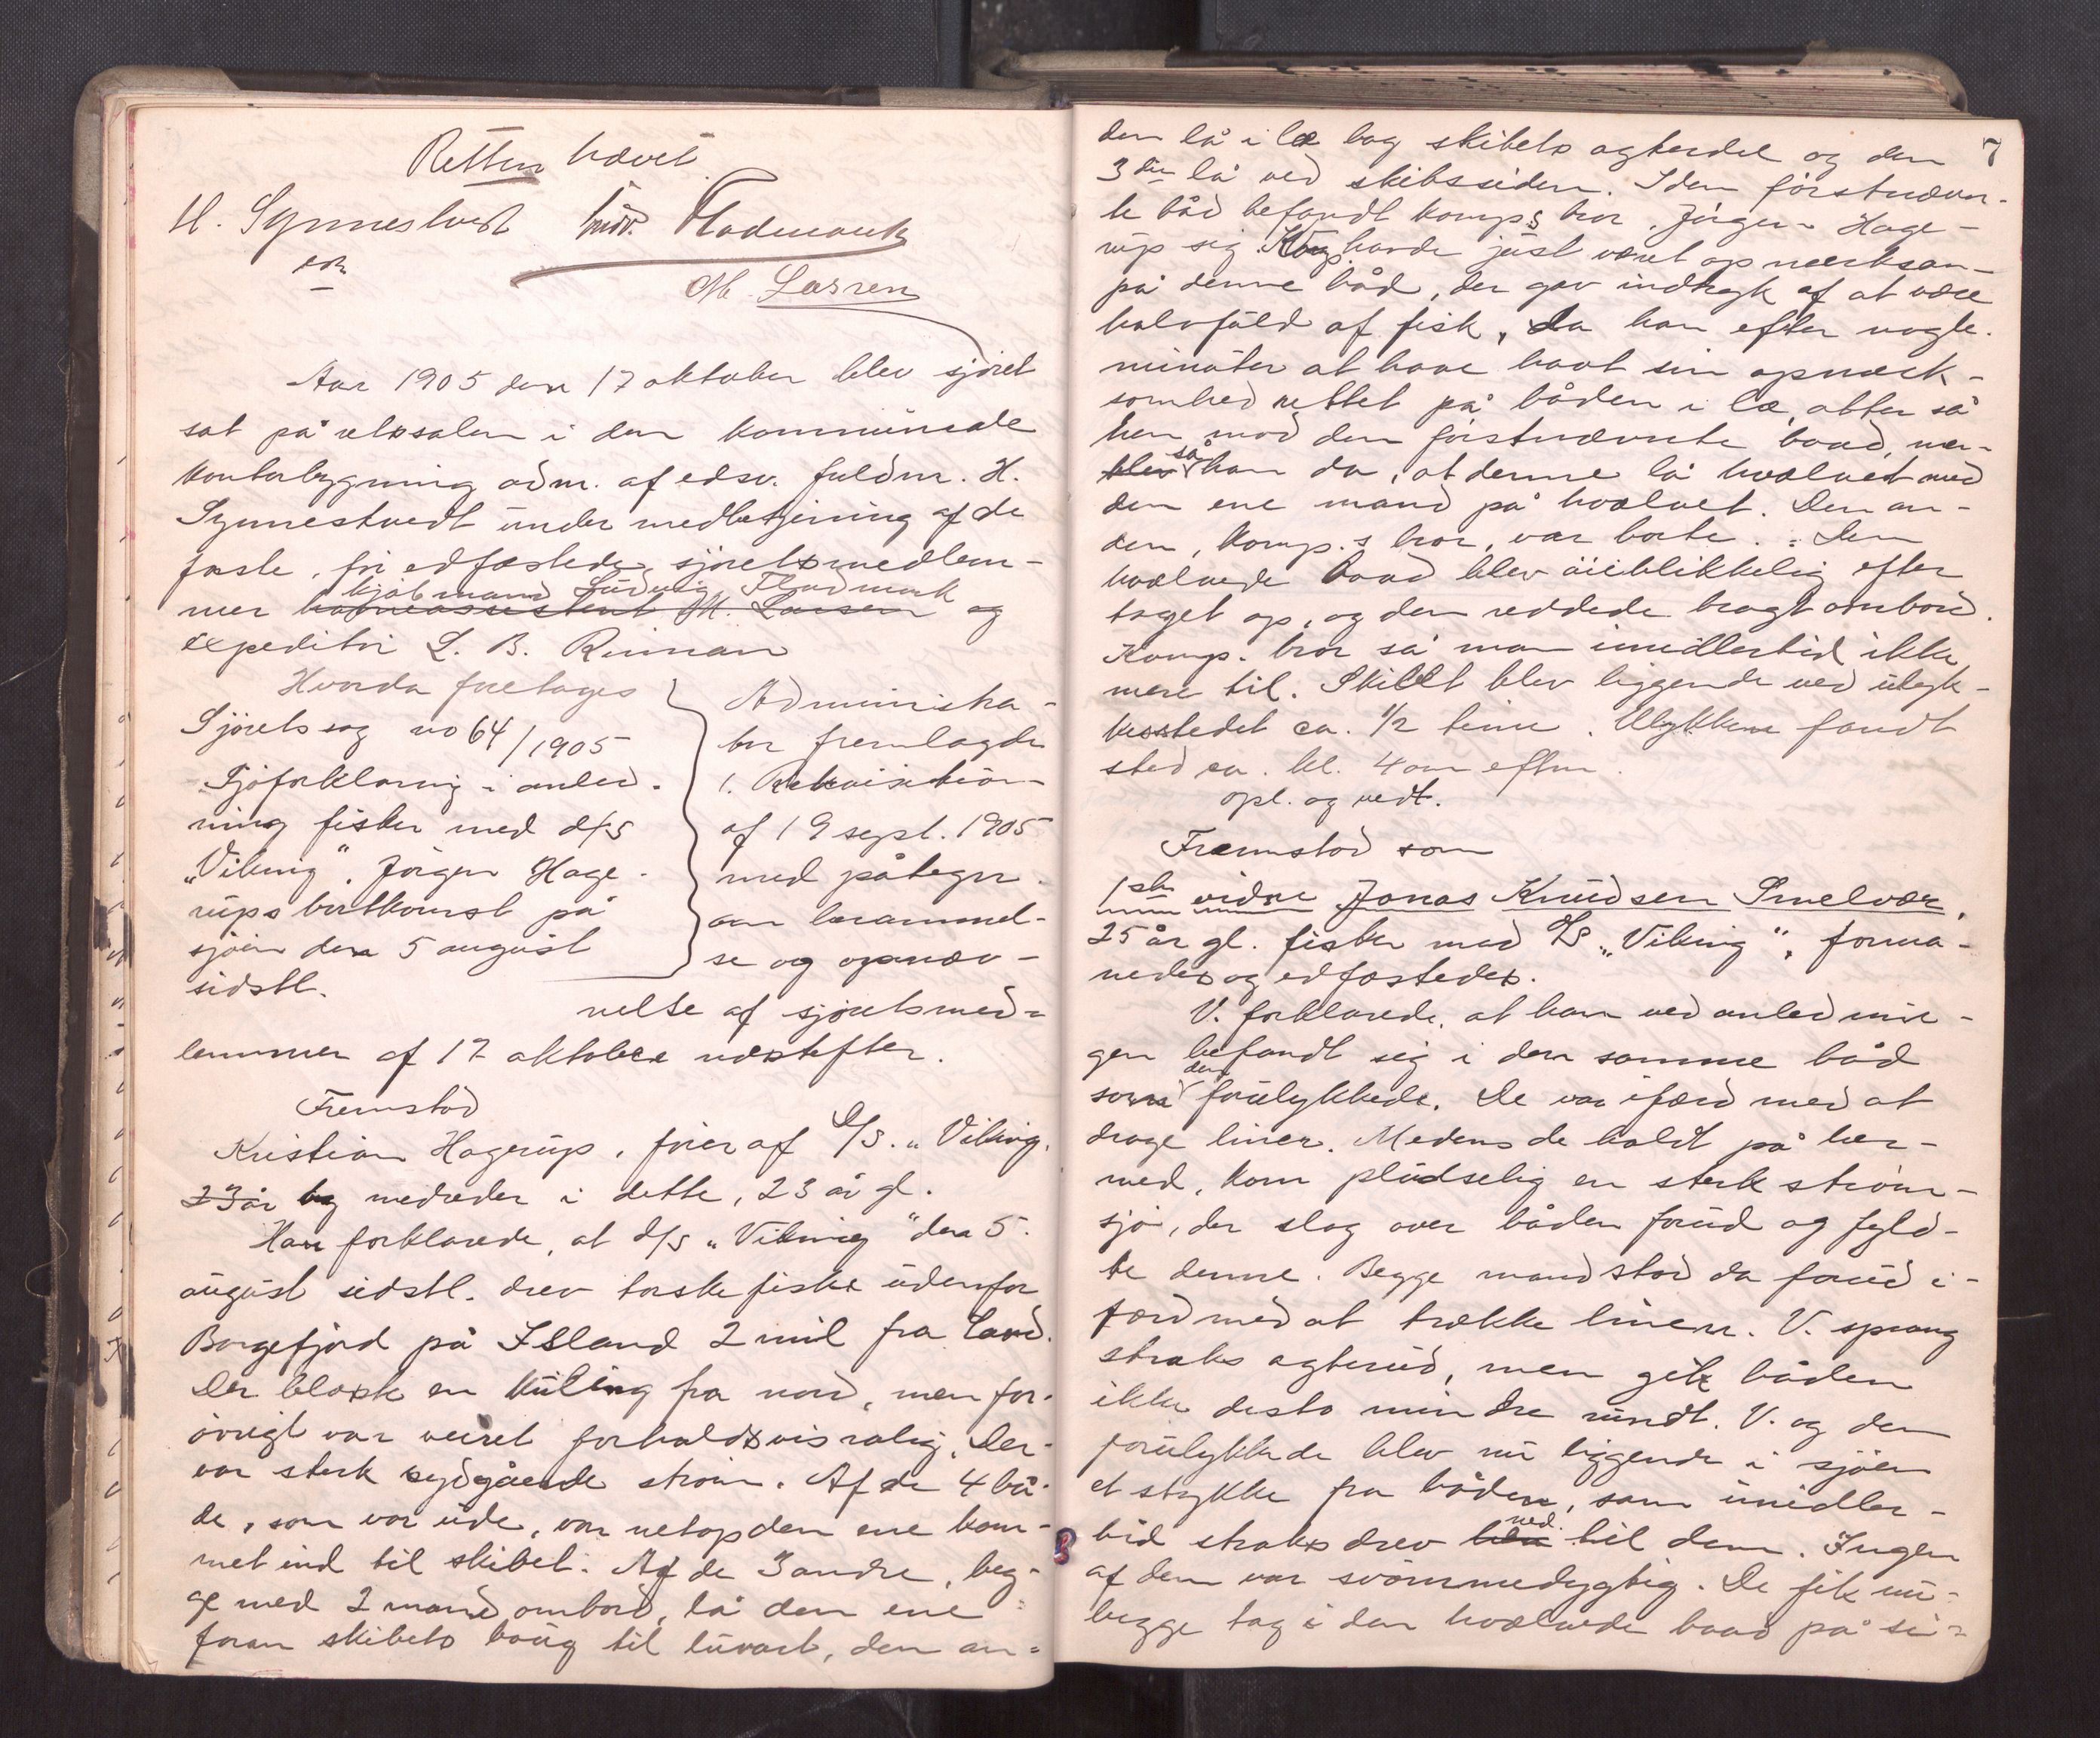 Retten hævet
H. Synnestvedt Ludv. Flademark
M. Larsen
Aar 1905 den 17 oktober blev sjøret
sat på retssalen i den kommunale
kontorbygning adm. af edsv. fuldm. H.
Synnestvedt under medbetjening af de
faste, før edfæstede sjøretsmedlem-
kjøbmand Ludvig Flademark
mer havneassistent M. Larsen og
expeditør L. B. Rinnan
Hvorda foretoges
Sjøretssag no 64/1905
Sjøforklaring i anled-
ning fisker med d/s
„Viking", Jørgen Hage-
rups bortkomst på
sjøen den 5 august
sidstl.
Administra-
tor fremlagde
1. Rekvisition
af 19 sept. 1905
med påtegn.
om berammel-
se og opnæv-
nelse af sjøretsmed-
lemmer af 17 oktober næstefter.
Fremstod
Kristian Hagerup, fører af D/S. „Viking,
23 år og medreder i dette, 23 år gl.
Han forklarede, at d/s „Viking" den 5.
august sidstl. drev torskefiske udenfor
Borgefjord på Island 2 mil fra Land.
Der blæste en kuling fra nord, men for-
øvrigt var veiret forholdsvis rolig. Der
var sterk sydgående strøm. Af de 4 bå-
de, som var ude, var netop den ene kom-
met ind til skibet. Af de 3 andre, beg-
ge med 2 mand ombord, lå den ene
foran skibets boug til luvart, den an-
7
den lå i læ bag skibets agterdel og den
3die lå ved skibssiden. I den førstnævn-
te båd befandt komp.s bror, Jørgen Hage-
rup sig. Komp. havde just været opmerksom
på denne båd, der gav indtryk af at være
halvfuld af fisk, da han efter nogle
minuter at have havt sin opmerk-
somhed rettet på båden i læ, atter så
hen mod den førstnævnte baad,
så
blev han da, at denne lå hvælvet med
den ene mand på hvælvet. Den an-
den, komp.s bror, var borte. Den
hvælvede baad blev øieblikkelig efter
taget op, og den reddede bragt ombord.
Komp. bror så man imidlertid ikke
mere til. Skibet blev liggende ved ulyk-
kesstedet ca. 1/2 time. Ulykken fandt
sted ca. kl. 4 om eftm.
opl. og vedt.
Fremstod som
1ste vidne Jonas Knudsen Smelvær,
25 år gl. fisker med D/S „Viking", forma-
nedes og edfæstedes.
V. forklarede, at han ved anlednin-
gen befandt sig i den samme båd
den
som forulykkede. De var ifærd med at
drage liner. Medens de holdt på her-
med, kom pludselig en sterk strøm-
sjø, der slog over båden forud og fyld-
te denne. Begge mand stod da forud i-
færd med at trække linen. V. sprang
straks agterud, men gik båden
ikke desto mindre rundt. V. og den
forulykkede blev nu liggende i sjøen
et stykke fra båden, som imidler-
ned
tid straks drev hen til dem. Ingen
af dem var svømmedygtig. De fik nu
begge tag i den hvælvede baad på si-